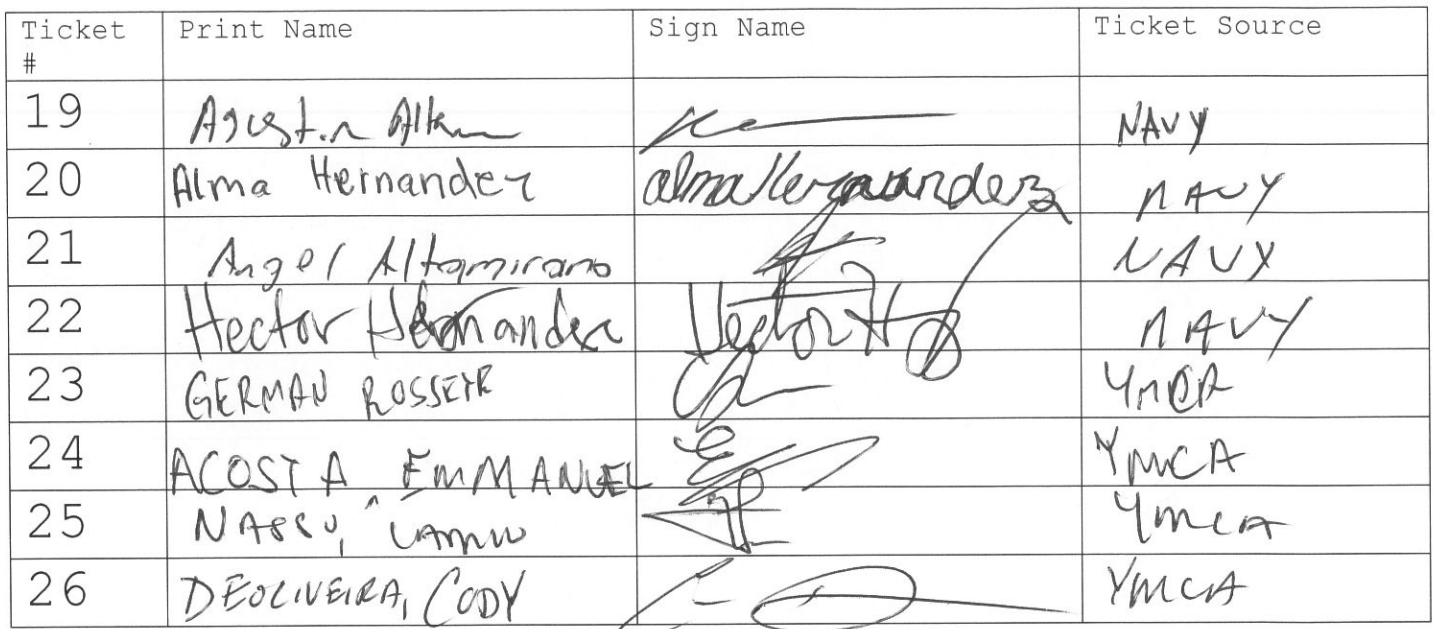 Ticket # Print Name Sign Name Ticket Source
19 Agustin NAVY
20 Alma Hernandez alma Hernandez NAVY
21 Angel Altamirano NAVY
22 Hector Hernandez Hector H NAVY
23 GERMAN YMCA
24 ACOSTA EMMANUEL YMCA
25 YMCA
26 DEOLIVEIRA, CODY YMCA